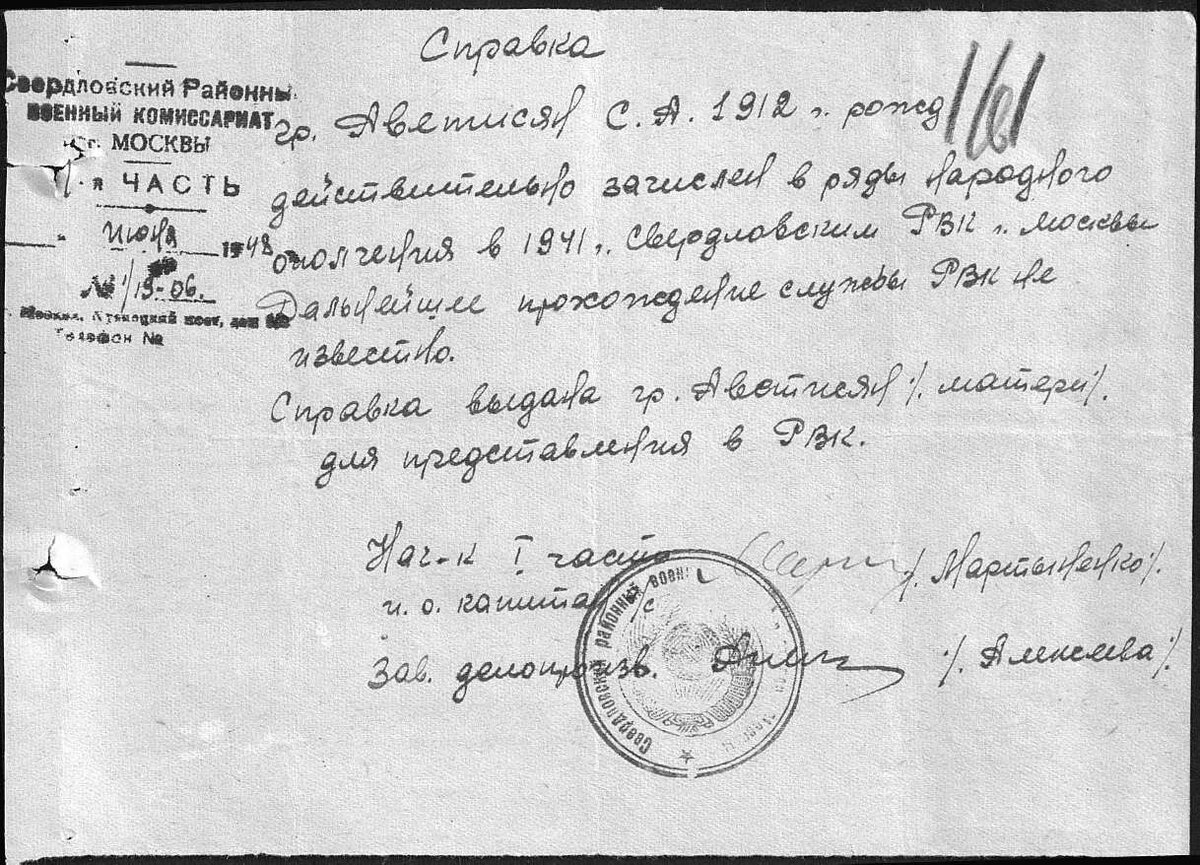 Справка
Свердловский Районны
ВОЕННЫЙ КОМИССАРИАТ
г. МОСКВЫ
я ЧАСТЬ
" июня 1948
№ 1/13-06.
Москва, Кузнецкий мост, дом
Телефон №
161
гр. Аветисян С. А. 1912 г. рожд
действительно зачислен в ряды народного
ополчения в 1941 г. Свердловским РВК г. Москвы
Дальнейшее прохождение службы РВК не
известно.
Справка выдана гр. Аветисян /. матери /.
для представления в РВК.
Нач-к I части
и. о. капитан /с /. Мартыненко /.
Зав. делопроизв. /. Алексеева /.
Свердловский районный воен